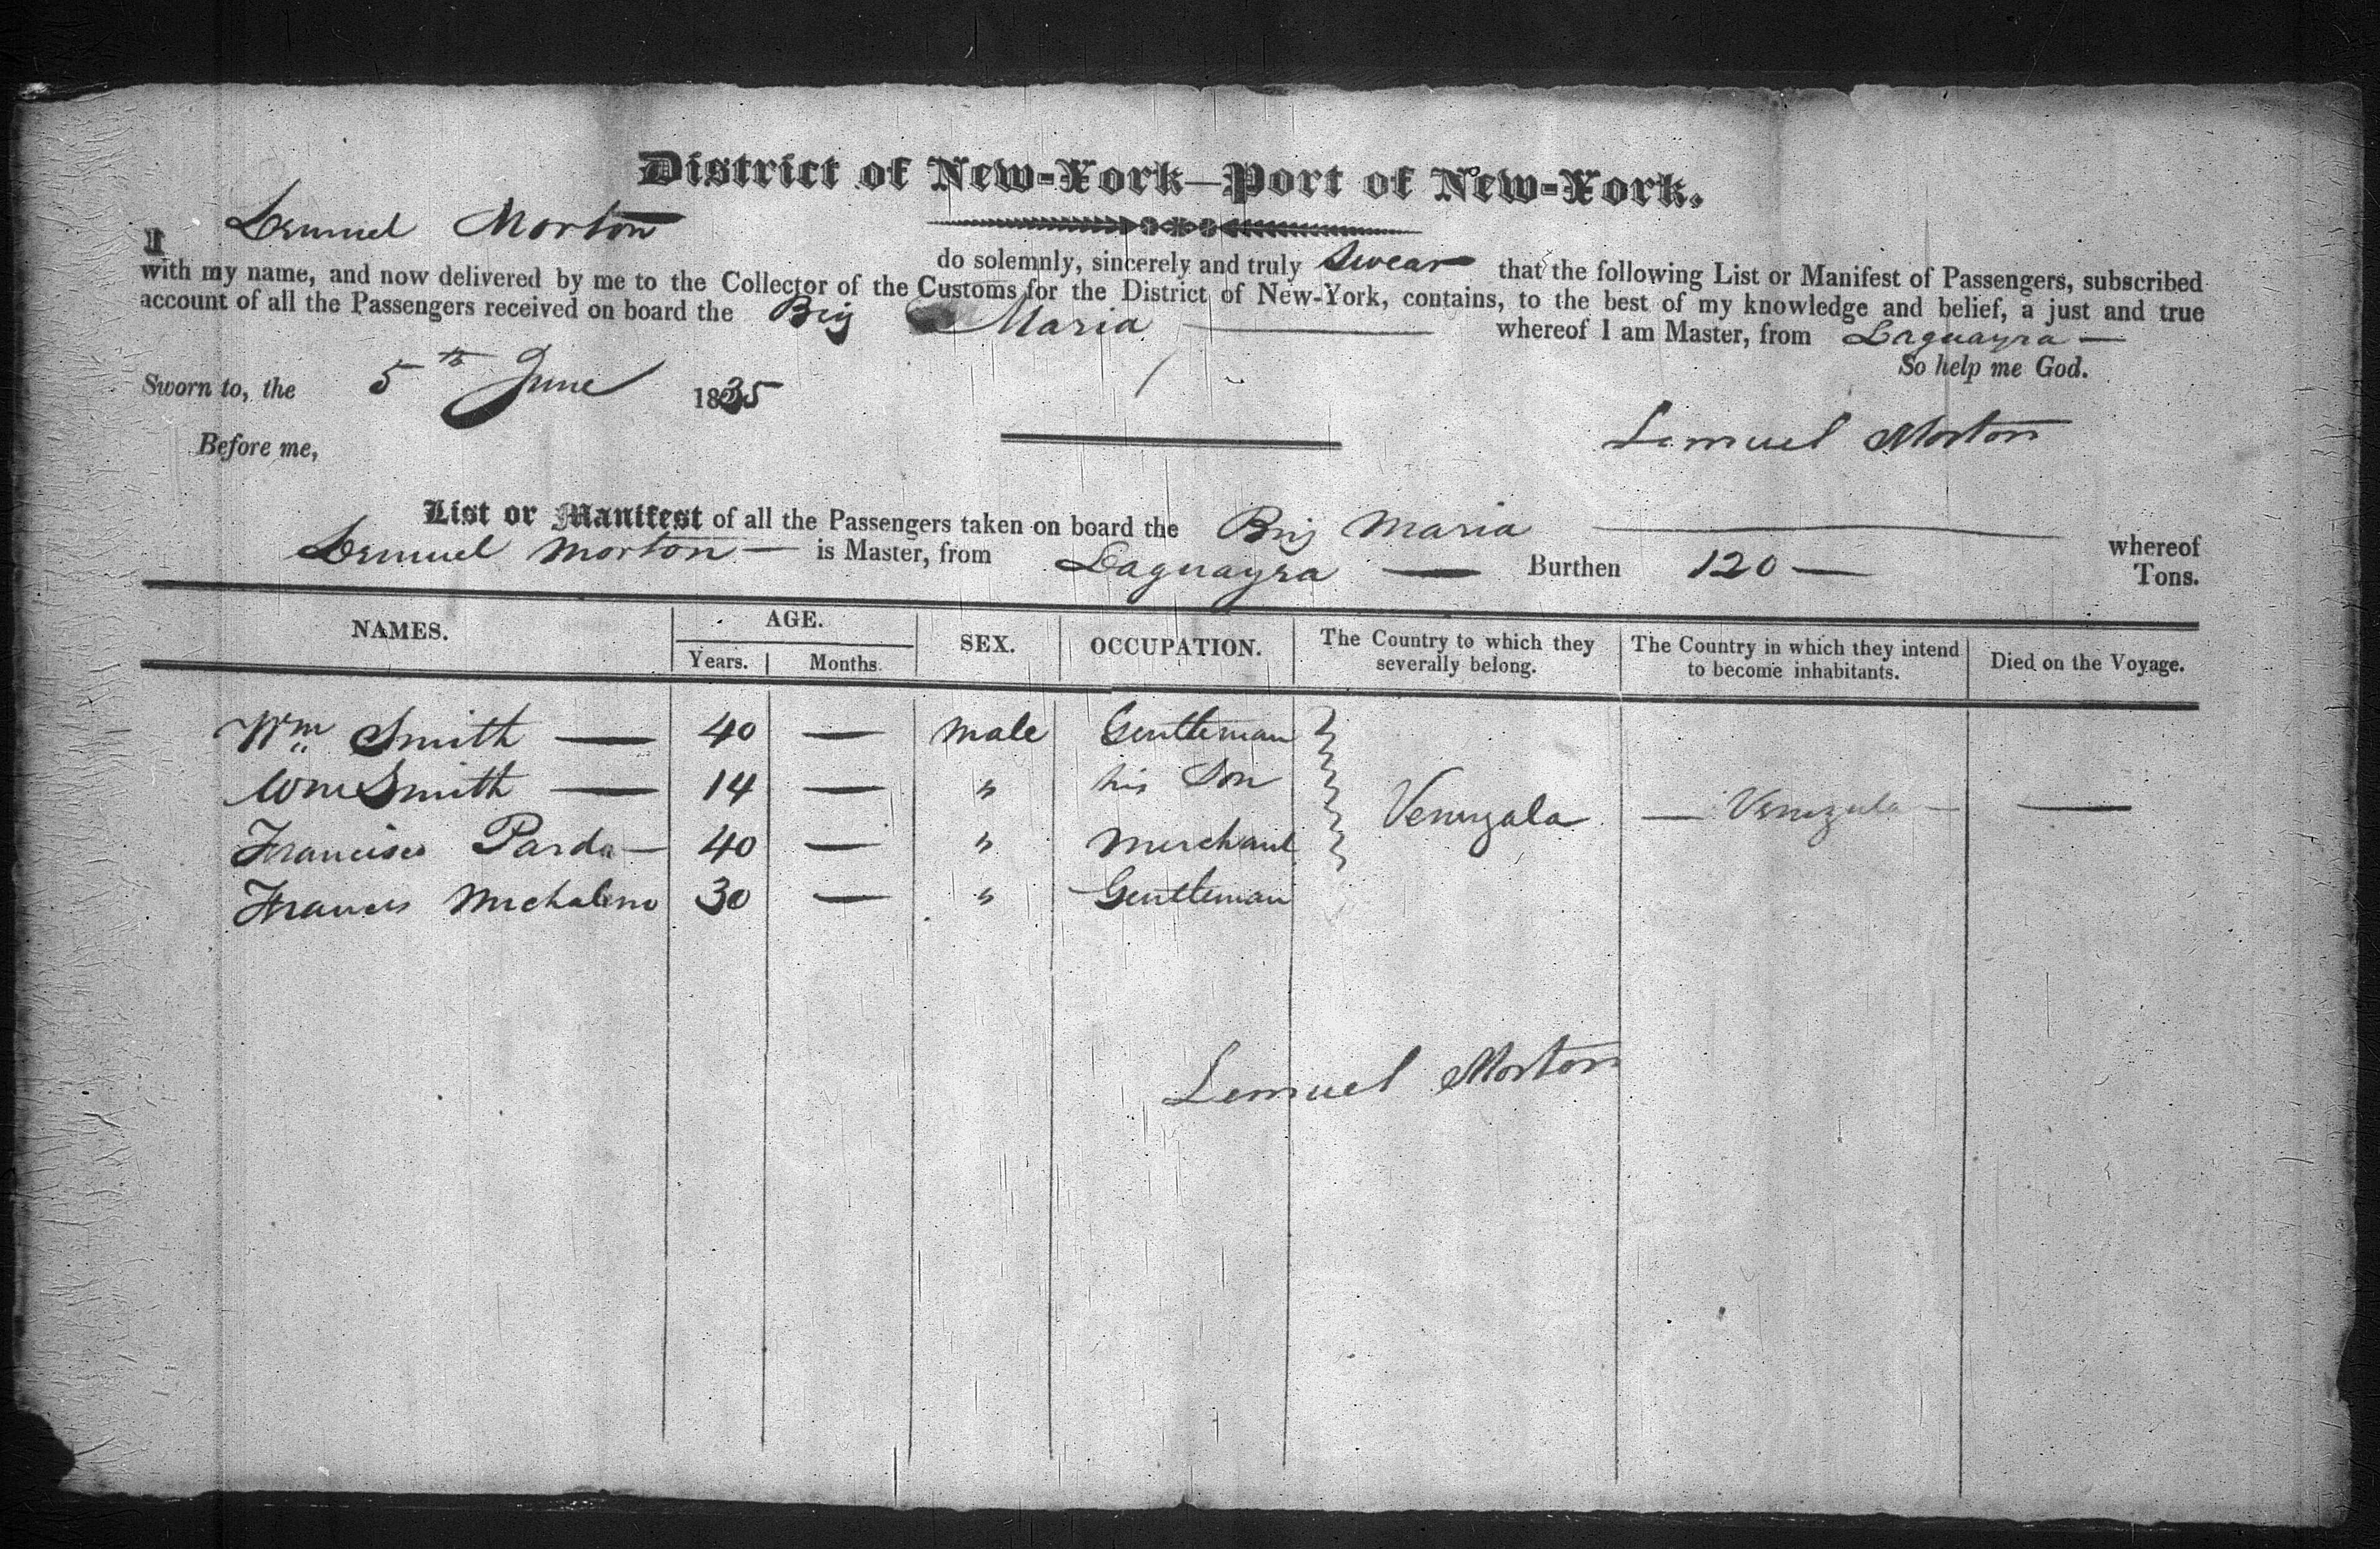 District of New-York—Port of New-York.
I Lemuel Morton do solemnly, sincerely and truly Swear that the following List or Manifest of Passengers, subscribed
with my name, and now delivered by me to the Collector of the Customs for the District of New-York, contains, to the best of my knowledge and belief, a just and true
account of all the Passengers received on board the Brig Maria — whereof I am Master, from Laguayra —
So help me God.
Sworn to, the 5th June 1835
Lemuel Morton
Before me,
List or Manifest of all the Passengers taken on board the Brig Maria — whereof
Lemuel Morton — is Master, from Laguayra — Burthen 120 — Tons.
NAMES. AGE. SEX. OCCUPATION. The Country to which they severally belong. The Country in which they intend to become inhabitants. Died on the Voyage.
Years. Months.
Wm Smith — 40 — Male Gentleman
Wm Smith — 14 — " his Son
Venezala — Venezula — —
Francisco Parda — 40 — " Merchant
Francis Michalino 30 — " Gentleman
Lemuel Morton